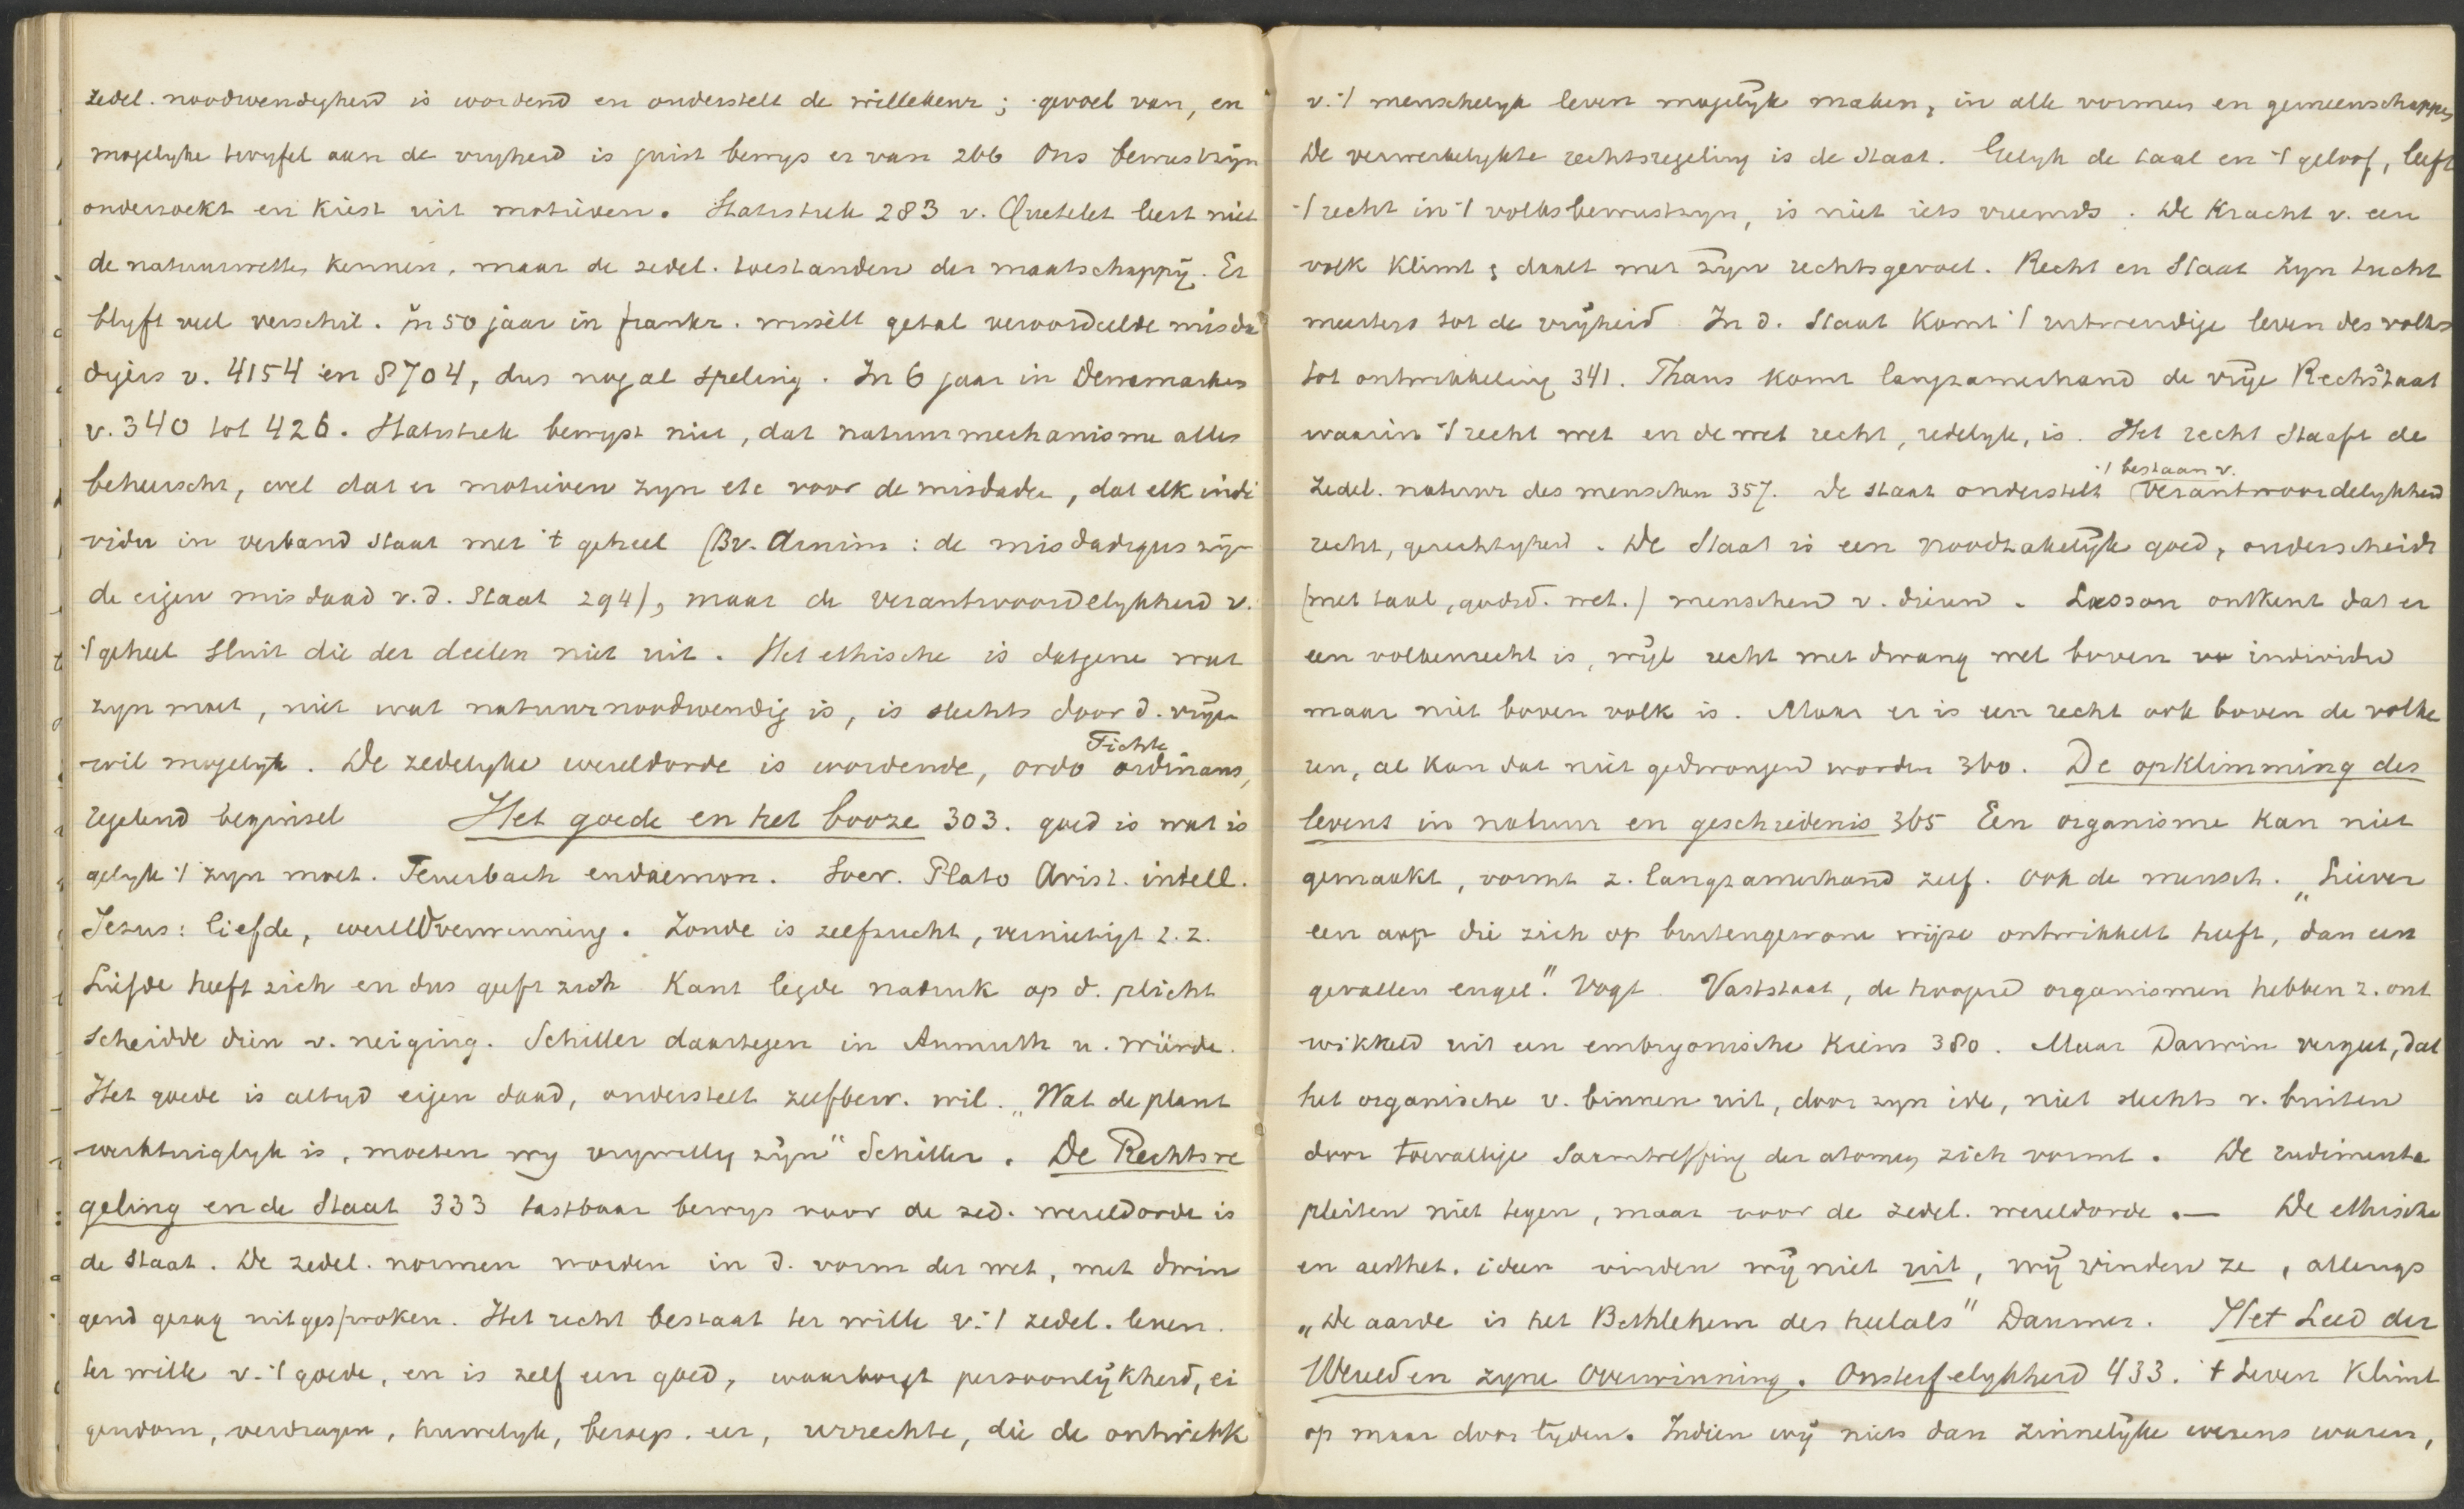 zedel. noodwendigheid is wordend en onderstelt de willekeur; gevoel van, en
mogelyke twyfel aan de vryheid is juist bewys er van 266 Ons bewustzijn
onderzoekt en kiest uit motieven. Statistiek 283 v. Quetelet leert niet
de natuurwetten kennen, maar de zedel. toestanden der maatschappij. Er
blyft veel verschil. In 50 jaar in frankr. wisselt getal veroordeelde misda
digers v. 4154 en 8704, dus nogal speling. In 6 jaar in Denemarken
v. 340 tot 426. Statistiek bewyst niet, dat natuurmechanisme alles
beheerscht, wel dat er motieven zyn etc voor de misdaden, dat elk indi
vidu in verband staat met 't geheel (Bv. Arnim: de misdadigers zijn
de eigen misdaad v.d. Staat 294), maar de verantwoordelykheid v.
't geheel sluit die der deelen niet uit. Het ethische is datgene wat
zyn moet, niet wat natuurnoodwendig is, is slechts door d. vrije
wil mogelyk. De zedelyke wereldorde is wordende, ordo ordinans,
Fichte
regelend beginsel Het goede en het booze 303. goed is wat is
gelyk 't zyn moet. Feuerbach eudaemon. Socr. Plato Arist. intell.
Jezus: liefde, wereldverwinning. Zonde is zelfzucht, vernietigt z.z.
Liefde heeft zich en dus geeft zich Kant legde nadruk op d. plicht
scheidde dien v. neiging. Schiller daartegen in Anmuth u. Würde.
Het goede is altyd eigen daad, onderstelt zelfbew. wil. „Wat de plant
werktuiglyk is, moeten wy vrywillig zijn" Schiller. De Rechtsre
geling en de Staat 333 tastbaar bewys voor de zed. wereldorde is
de Staat. De zedel. normen worden in d. vorm der wet, met dwin
gend gezag uitgesproken. Het recht bestaat ter wille v. 't zedel. leven.
ter wille v. 't goede, en is zelf een goed, waarborgt persoonlijkheid, ei
gendom, verdragen, huwelyk, beroep. eer, urrechte, die de ontwikk
v. 't menschelyk leven mogelijk maken, in alle vormen en gemeenschappen
De verwerkelykte rechtsregeling is de Staat. Gelyk de taal en 't geloof, leeft
't recht in 't volksbewustzyn, is niet iets vreemds. De Kracht v. een
volk klimt & daalt met zijn rechtsgevoel. Recht en Staat zyn tucht
meesters tot de vrijheid In d. Staat komt 't uitwendige leven des volks
tot ontwikkeling 341. Thans komt langzamerhand de vrije Rechtstaat
waarin 't recht wet en de wet recht, redelyk, is. Het recht staaft de
zedel. natuur des menschen 357. De staat onderstelt verantwoordelykheid
't bestaan v.
recht, gerechtigheid. De Staat is een noodzakelijk goed, onderscheidt
(met taal, godsd. wet.) menschen v. dieren. Lasson ontkent dat er
een volkenrecht is, wijl recht met dwang wel boven individu
maar niet boven volk is. Maar er is een recht ook boven de volke
ren, al kan dat niet gedwongen worden 360. De opklimming des
levens in natuur en geschiedenis 365 Een organisme kan niet
gemaakt, vormt z. langzamerhand zelf. Ook de mensch. „Liever
een aap die zich op buitengewone wijze ontwikkelt heeft, dan een
gevallen engel". Vogt Vaststaat, de hoogere organismen hebben z. ont
wikkeld uit een embryonische Kiem 380. Maar Darwin vergeet, dat
het organische v. binnen uit, door zyn idee, niet slechts v. buiten
door toevallige saamtreffing der atomen zich vormt. De rudimenta
pleiten niet tegen, maar voor de zedel. wereldorde. — De ethische
en aesthet. ideen vinden wij niet uit, wij vinden ze, allengs
„De aarde is het Bethlehem des heelals" Daumer. Het Leed der
Wereld en zyne Overwinning. Onsterfelykheid 433. 't Leven klimt
op maar door lyden. Indien wij niets dan zinnelijke wezens waren,